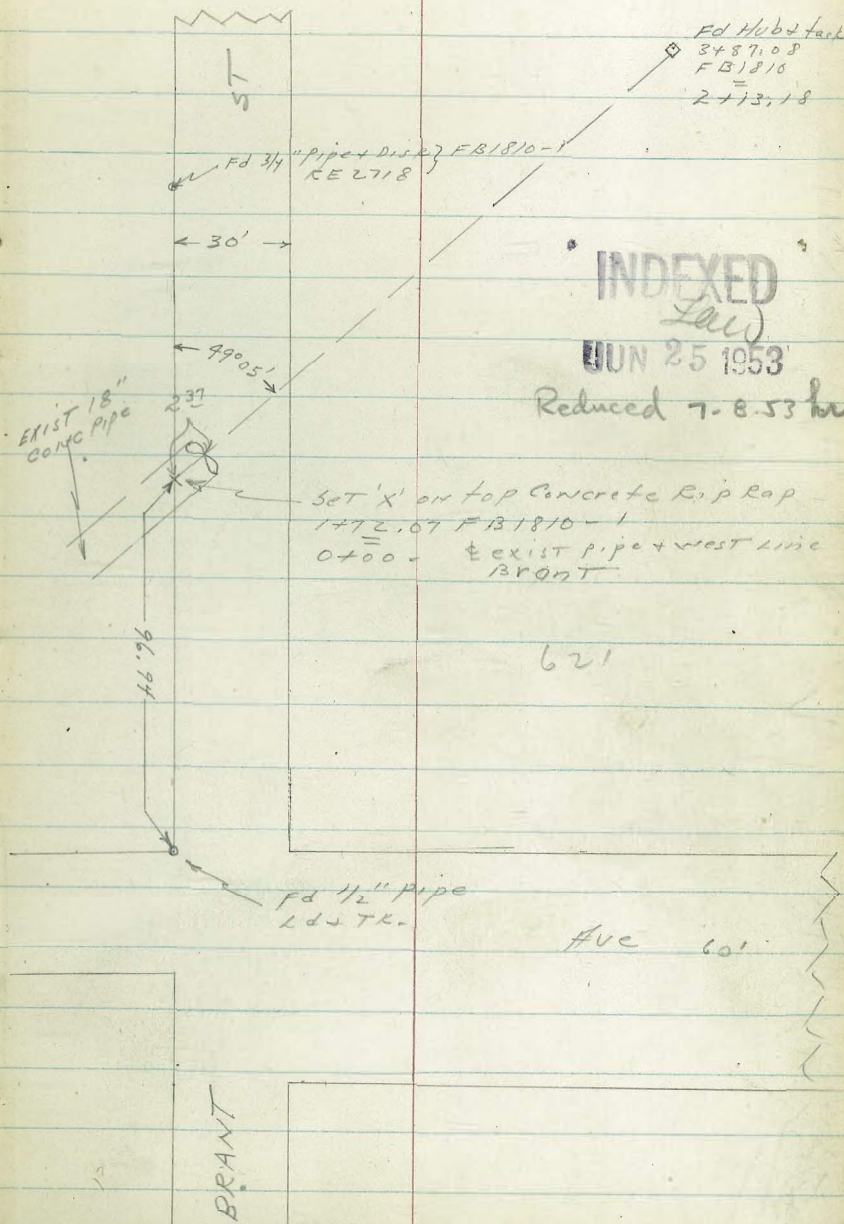 Fd Hub & tack
3+87.08
FB1810
=
2+13.18
ST
Fd 3/4" Pipe + Disk } FB1810-1
RE 2718
30'
INDEXED
Law
JUN 25 1953
Reduced 7-8-53
49°05'
EXIST 18"
CONC PIPE
2.37
SET 'X' on top Concrete Rip Rap
1+72.07 FB1810-1
=
0+00 - ℄ exist pipe + west Line
Brant
96.94
621
Fd 1/2" Pipe
Ld + TK.
Ave 60'
BRANT